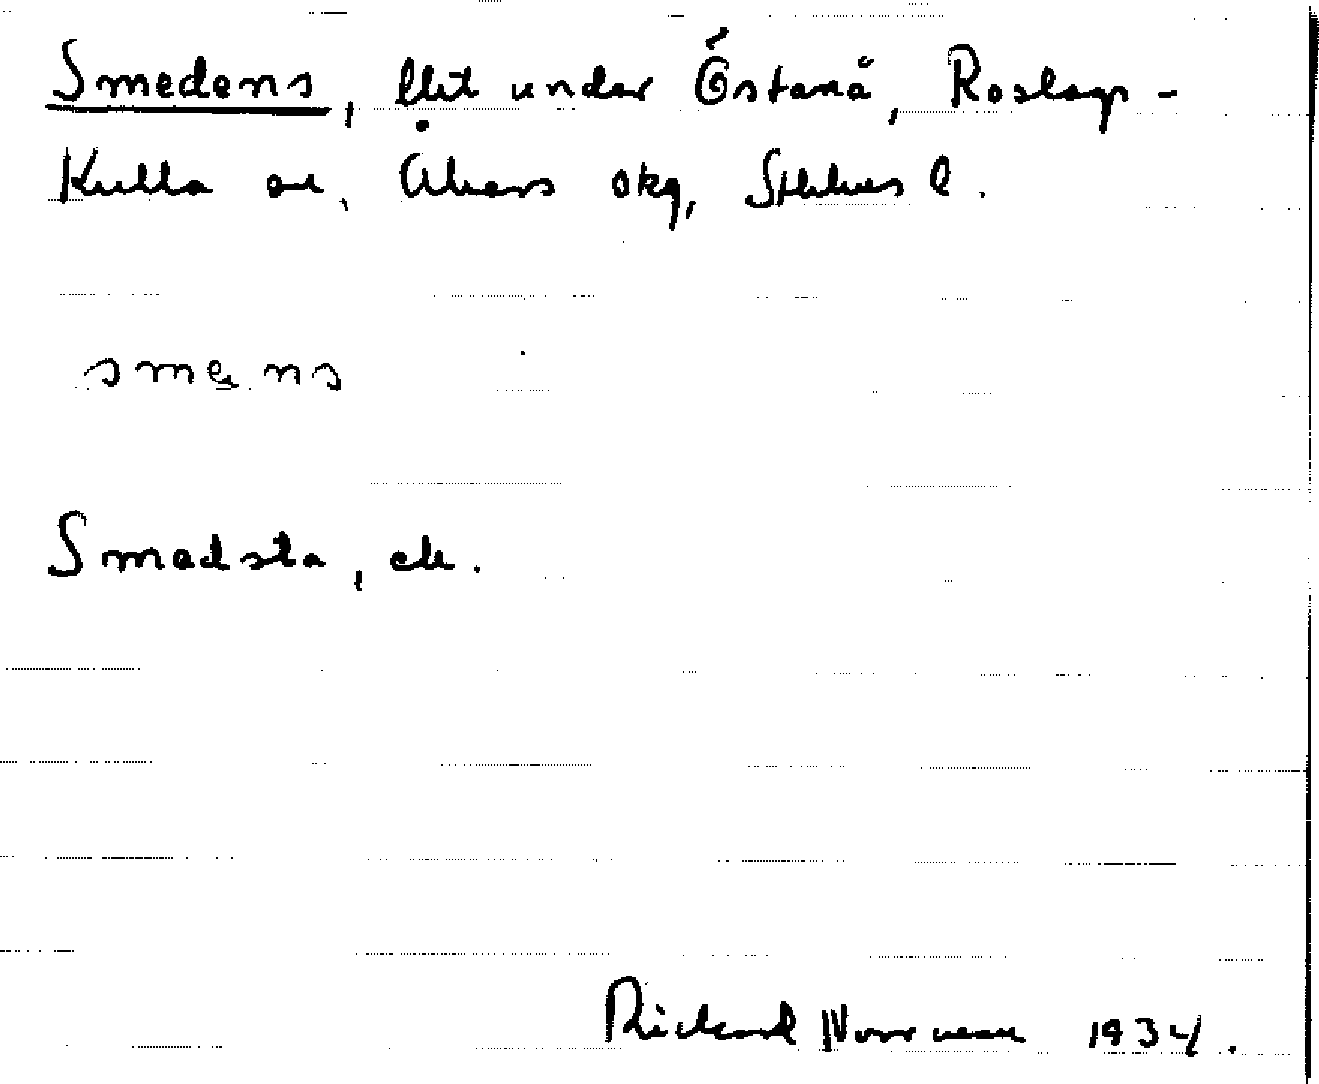 Smedens, lht under Östanå, Roslags-
Kulla sn, Åkers skg, Sthlms l.
smens
Smedsta, ek.
Rickard Norrman 1934.